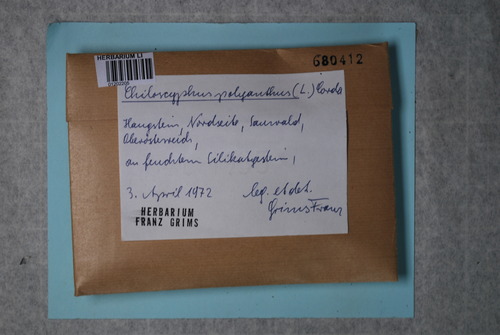 HERBARIUM LI
680412
Chiloscyphus polyanthus (L.) Corda
Haugstein, Nordseite, Sauwald,
Oberösterreich,
an feuchtem Silikatgestein,
3. April 1972 leg. et det.
HERBARIUM Grims Franz
FRANZ GRIMS